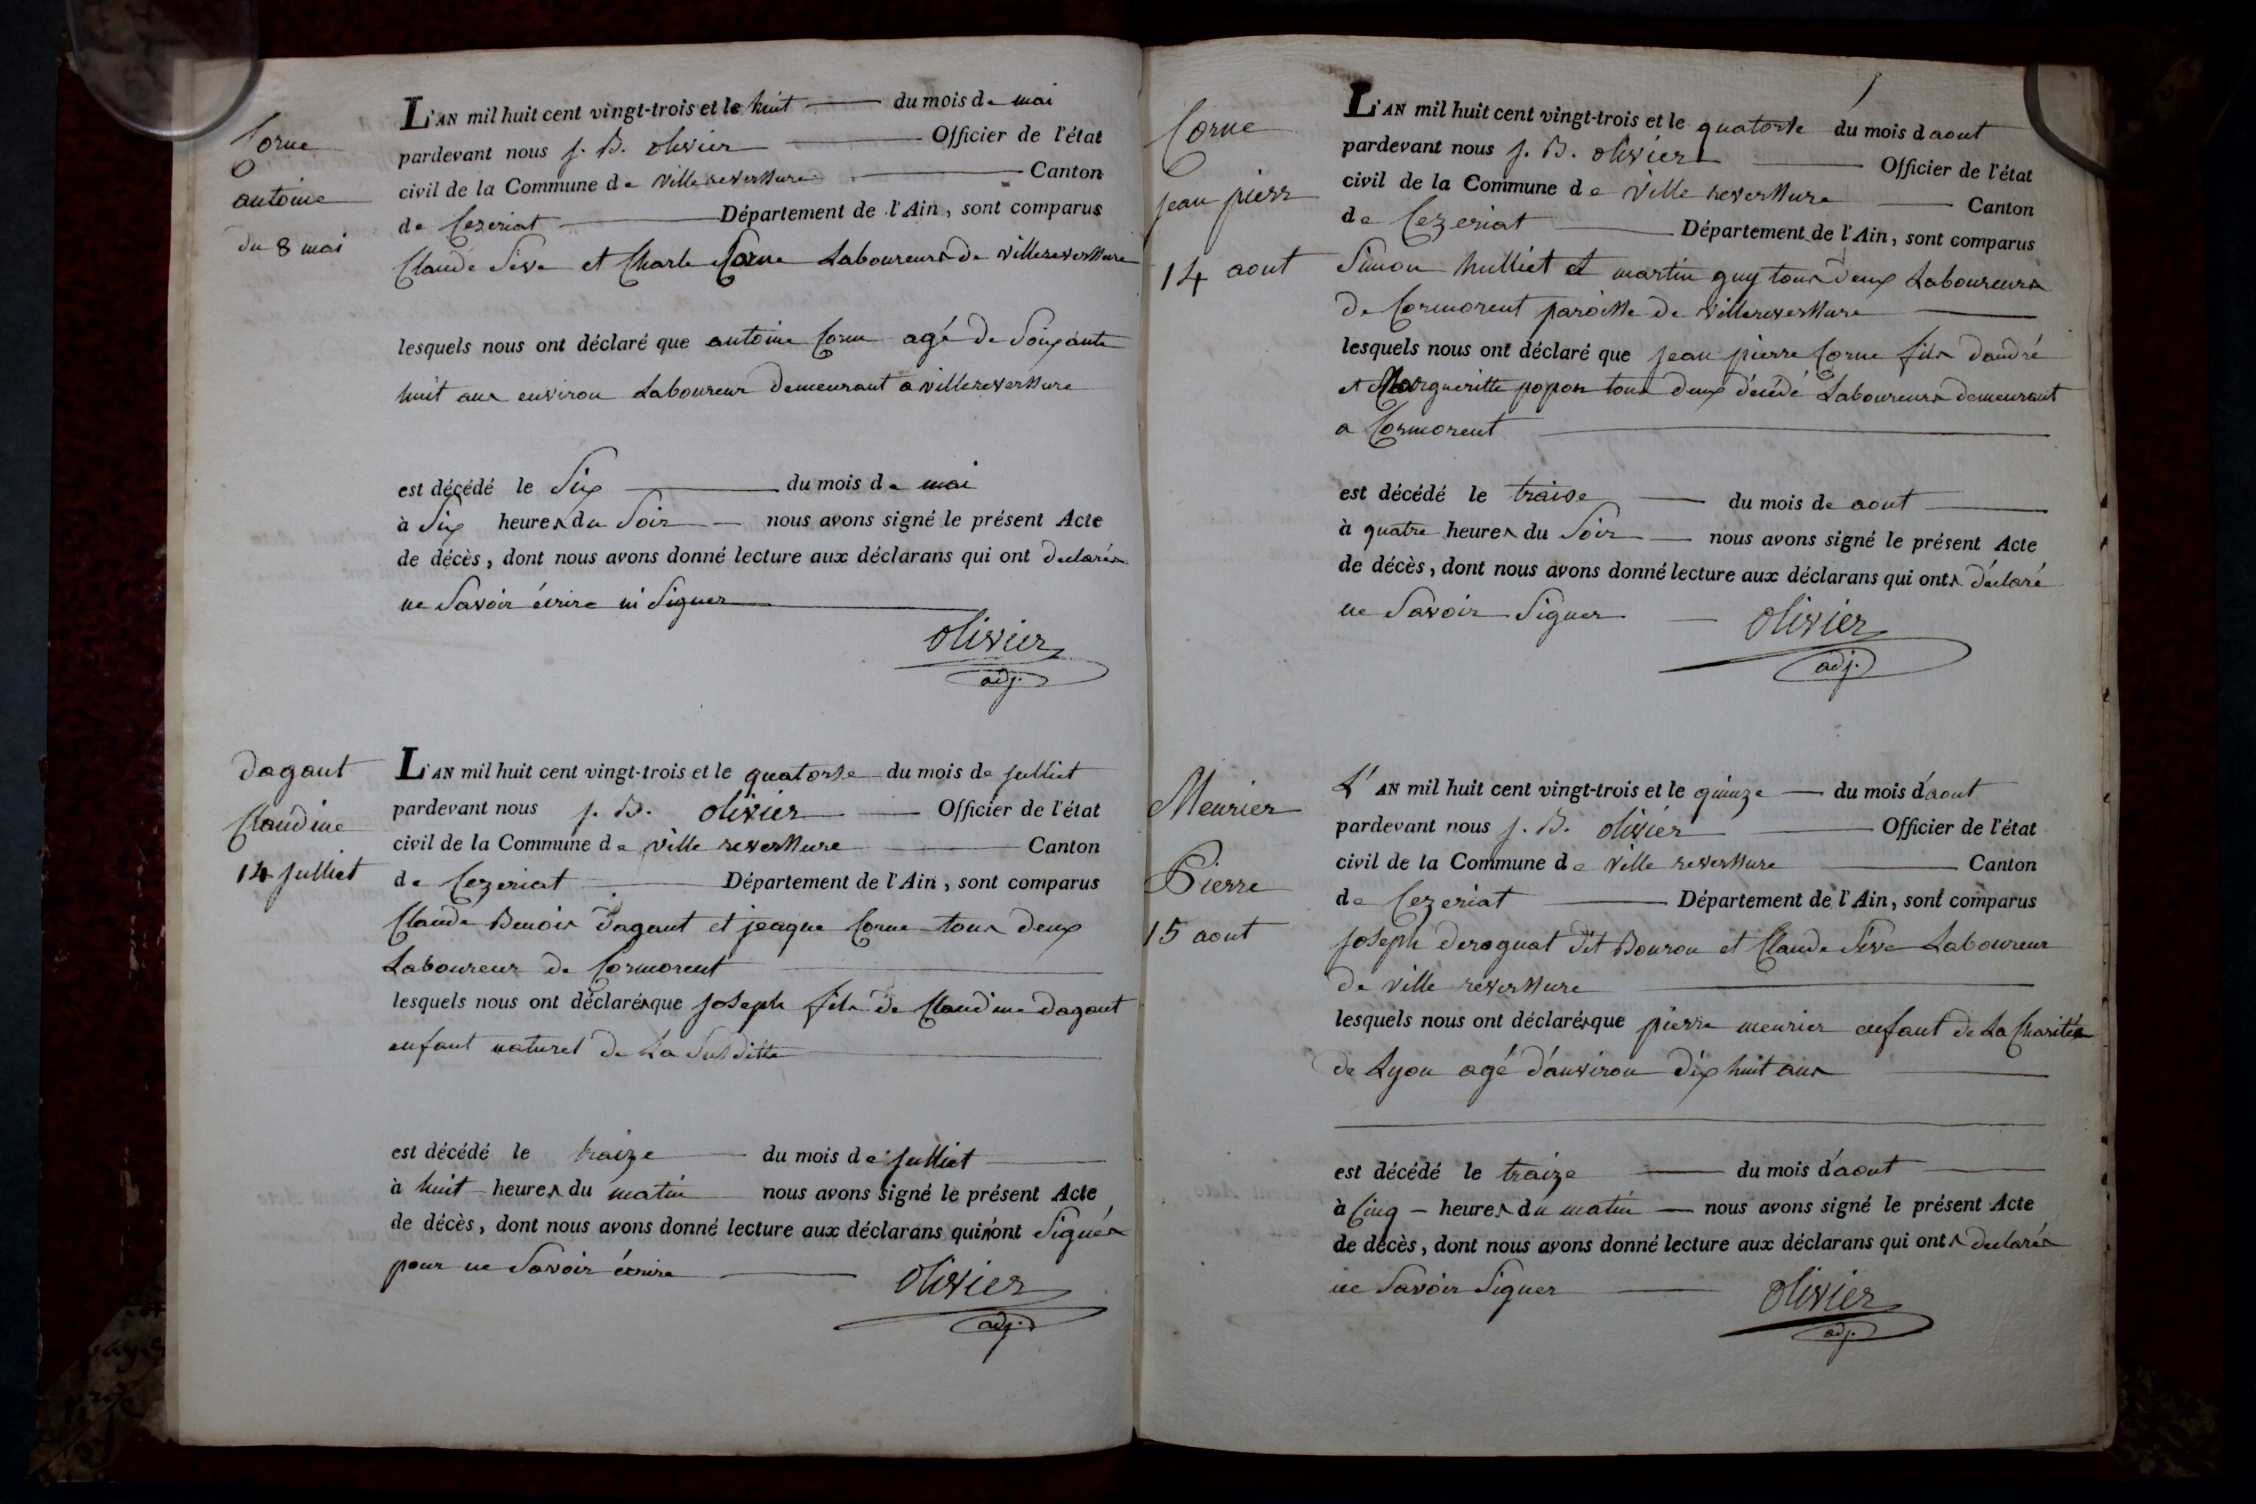 Corne
antoine
du 8 mai
L'AN mil huit cent vingt-trois et le huit du mois de mai
pardevant nous J. B. olivier Officier de l'état
civil de la Commune de villereverssure Canton
de Cezeriat Département de l'Ain, sont comparus
Claude Seve et Charle Corne Laboureurs de villereverssure
lesquels nous ont déclaré que antoine Corne agé de Soixante
huit ans environ Laboureur demeurant a villereverssure
est décédé le Six du mois de mai
à Six heures du Soir nous avons signé le présent Acte
de décès, dont nous avons donné lecture aux déclarans qui ont declarés
ne Savoir écrire ni Signer
olivier
adj.
dagaut
Claudine
14 Julliet
L'AN mil huit cent vingt-trois et le quatorse du mois de Julliet
pardevant nous J. B. olivier Officier de l'état
civil de la Commune de ville reverssure Canton
de Cezeriat Département de l'Ain, sont comparus
Claude Benois dagaut et jeaque Corne tous deux
Laboureur de Cormorent
lesquels nous ont déclarés que Joseph fils de Claudine dagaut
enfant naturel de La Susditte
est décédé le traize du mois de Julliet
à huit heures du matin nous avons signé le présent Acte
de décès, dont nous avons donné lecture aux déclarans qui n'ont Signés
pour ne Savoir écrire
olivier
adj.
Corne
jean pierr
14 aout
L'AN mil huit cent vingt-trois et le quatorse du mois d aout
pardevant nous J. B. olivier Officier de l'état
civil de la Commune de ville reverssure Canton
de Cezeriat Département de l'Ain, sont comparus
Simon hulliet et martin guy tous deux Laboureurs
de Cormorent paroisse de villereverssure
lesquels nous ont déclaré que jean pierre Corne fils dandré
et Margueritte popon tous deux décédé Laboureurs demeurant
a Cormorent
est décédé le traise du mois de aout
à quatre heures du Soir nous avons signé le présent Acte
de décès, dont nous avons donné lecture aux déclarans qui onts déclaré
ne Savoir Signer
olivier
adj.
Meurier
Pierre
15 aout
L'AN mil huit cent vingt-trois et le quinze du mois d'aout
pardevant nous J. B. olivier Officier de l'état
civil de la Commune de ville reverssure Canton
de Cezeriat Département de l'Ain, sont comparus
Joseph deroguat dit Bouron et Claude Seve Laboureur
de ville reverssure
lesquels nous ont déclarés que pierre meurier enfant de La Charité
de Lyon agé d'anviron dix huit ans
est décédé le traize du mois d'aout
à Cinq heures du matin nous avons signé le présent Acte
de décès, dont nous avons donné lecture aux déclarans qui onts declarés
ne Savoir Signer
olivier
adj.